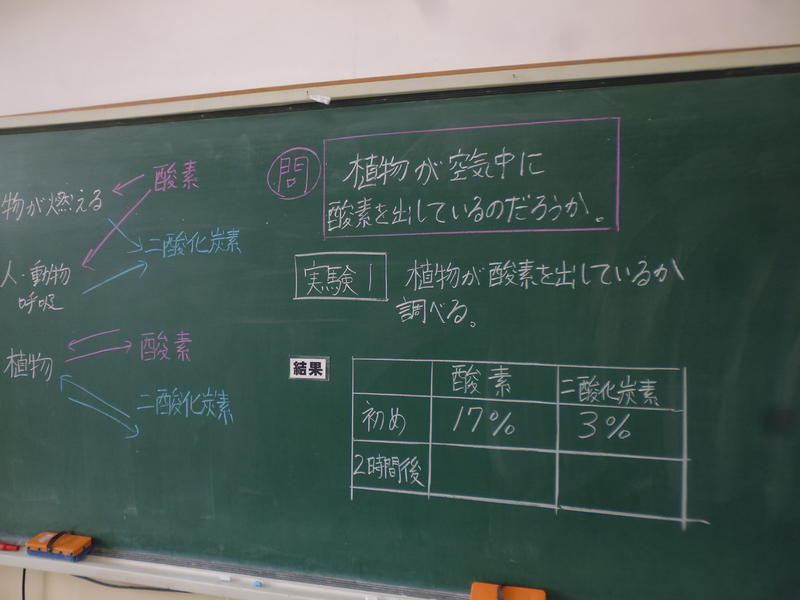 物が燃える
酸素
二酸化炭素
人・動物
呼吸
植物
酸素
二酸化炭素
問
植物が空気中に
酸素を出しているのだろうか。
実験1 植物が酸素を出しているか
調べる。
結果
酸素 二酸化炭素
初め 17% 3%
2時間後